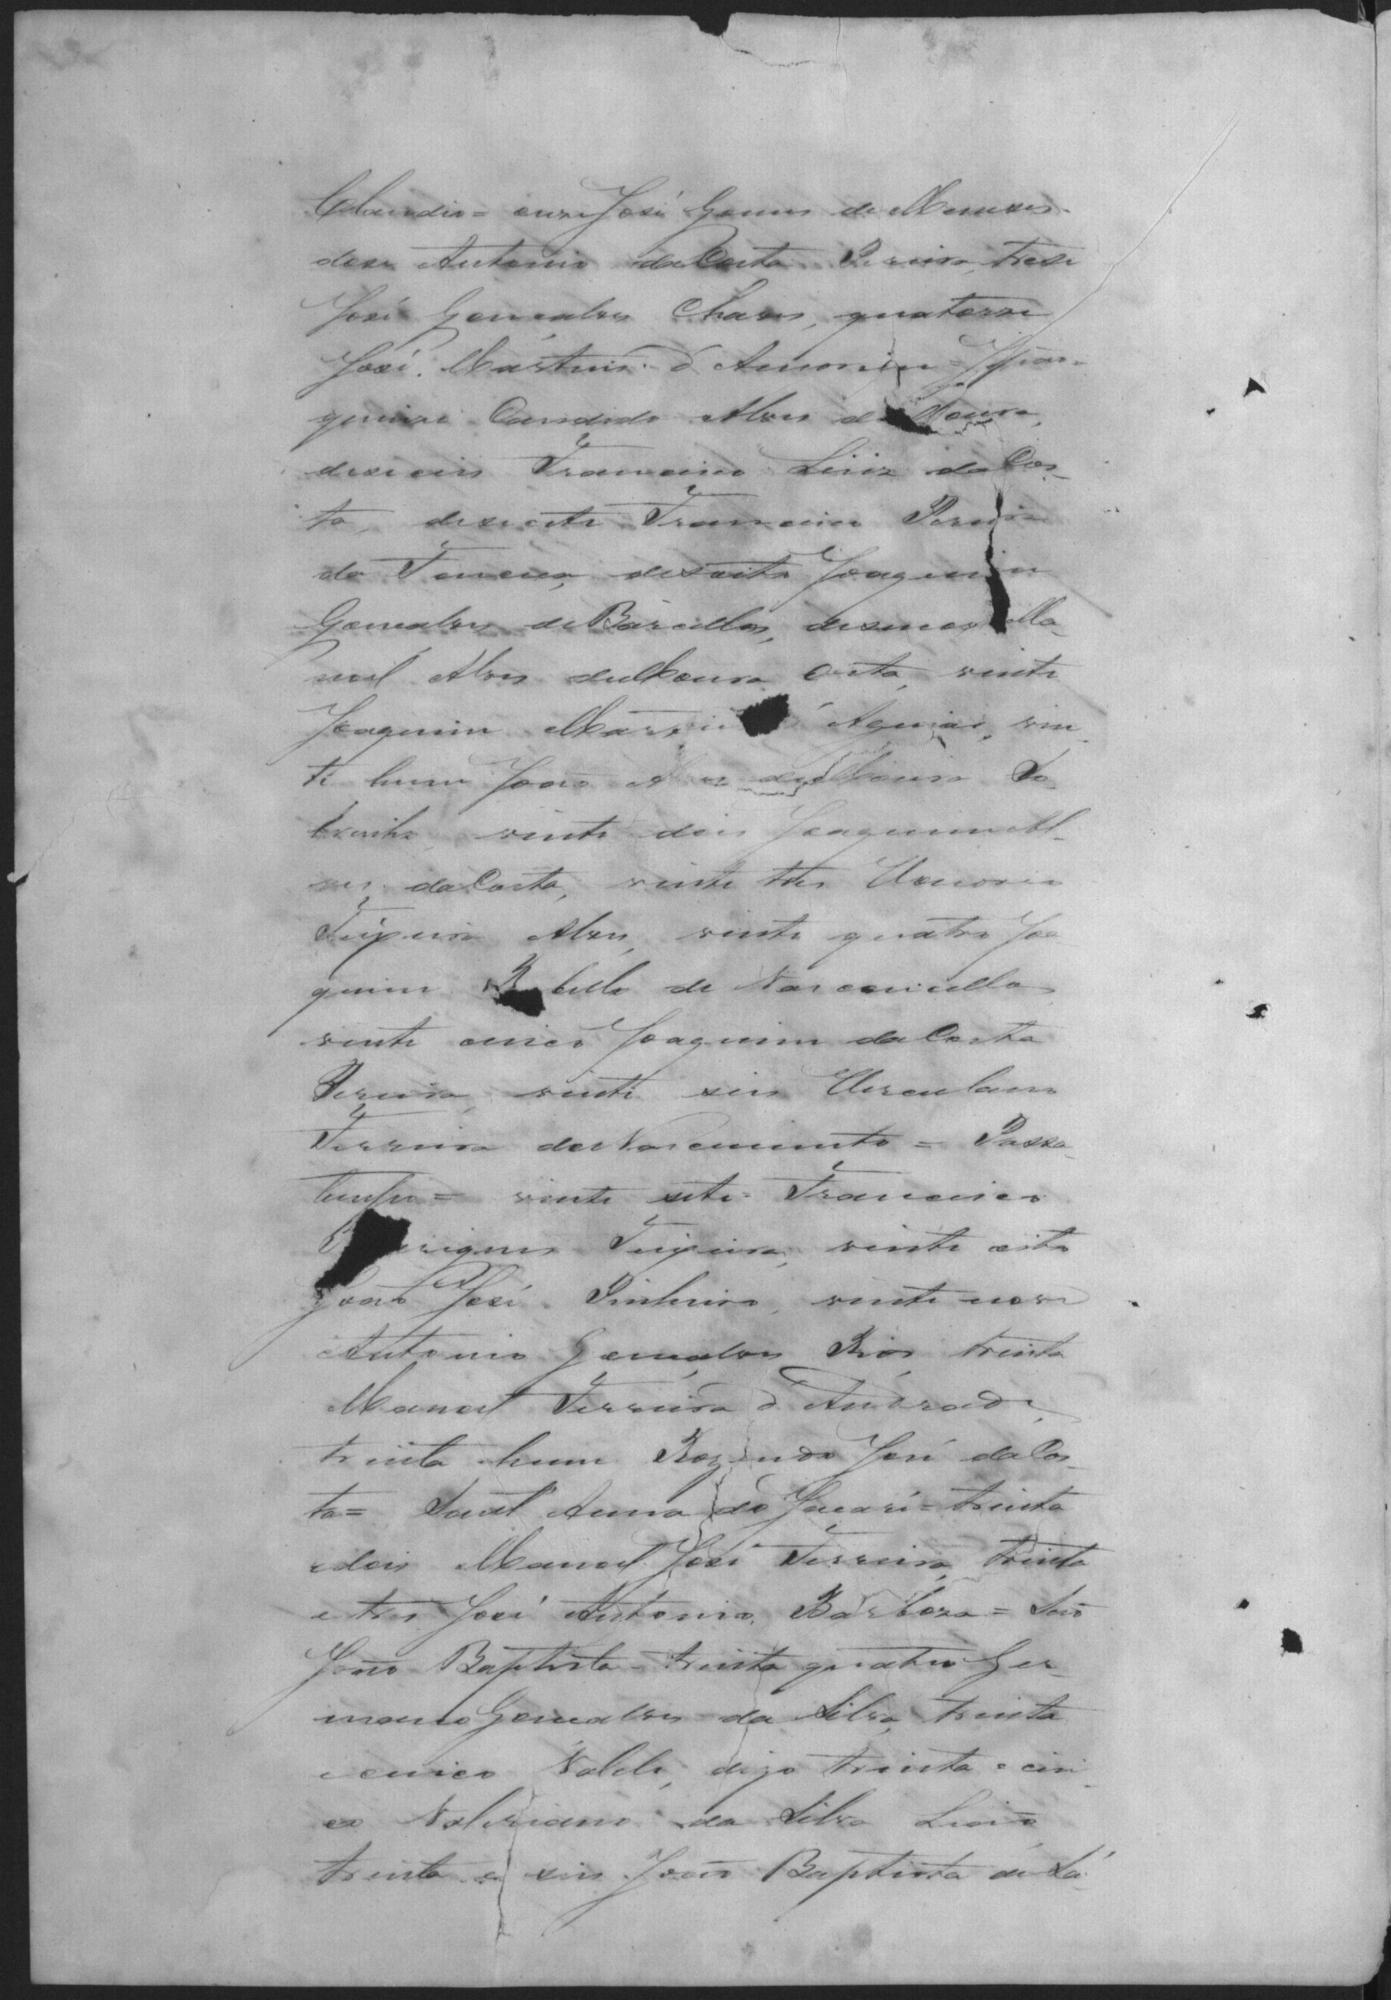 Claudio = onze José Gomes de Menezes
doze Antonio da Costa Pereira, treze
José Gonçalves Chaves, quatorze
José Martins d'Amorim =
quinze Candido Alves de Moura,
deseseis Francisco Luiz da Cos-
ta, desesete Francisco Pereira
da Fonceca, desoito Joaquim
Gonçalves de Barcellos, desenove Ma-
noel Alves de Moura Costa, vinte
Joaquim Martins d'Aguiar, vin-
te hum João Alves de Moura So-
brinho, vinte dois Joaquim Al-
ves da Costa, vinte tres Honorio
Teixeira Alves, vinte quatro Joa
quim Rabello de Vasconcellos
vinte cinco Joaquim da Costa
Pereira, vinte seis Herculano
Ferreira do Nascimento = Passa
tempo = vinte sete Francisco
Rodrigues Teixeira, vinte oito
João José Pinheiro, vinte nove
Antonio Gonçalves Rios, trinta
Manoel Ferreira d'Andrade,
trinta hum Rozendo José da Cos-
ta = Sant'Anna do Jacaré = trinta
e dois Manoel José Ferreira, trinta
e tres José Antonio Barboza = São
João Baptista = trinta quatro Ger-
mano Gonçalves da Silva, trinta
e cinco Valeli, digo trinta e cin-
co Valeriano da Silva Leão,
trinta e seis João Baptista de Sá